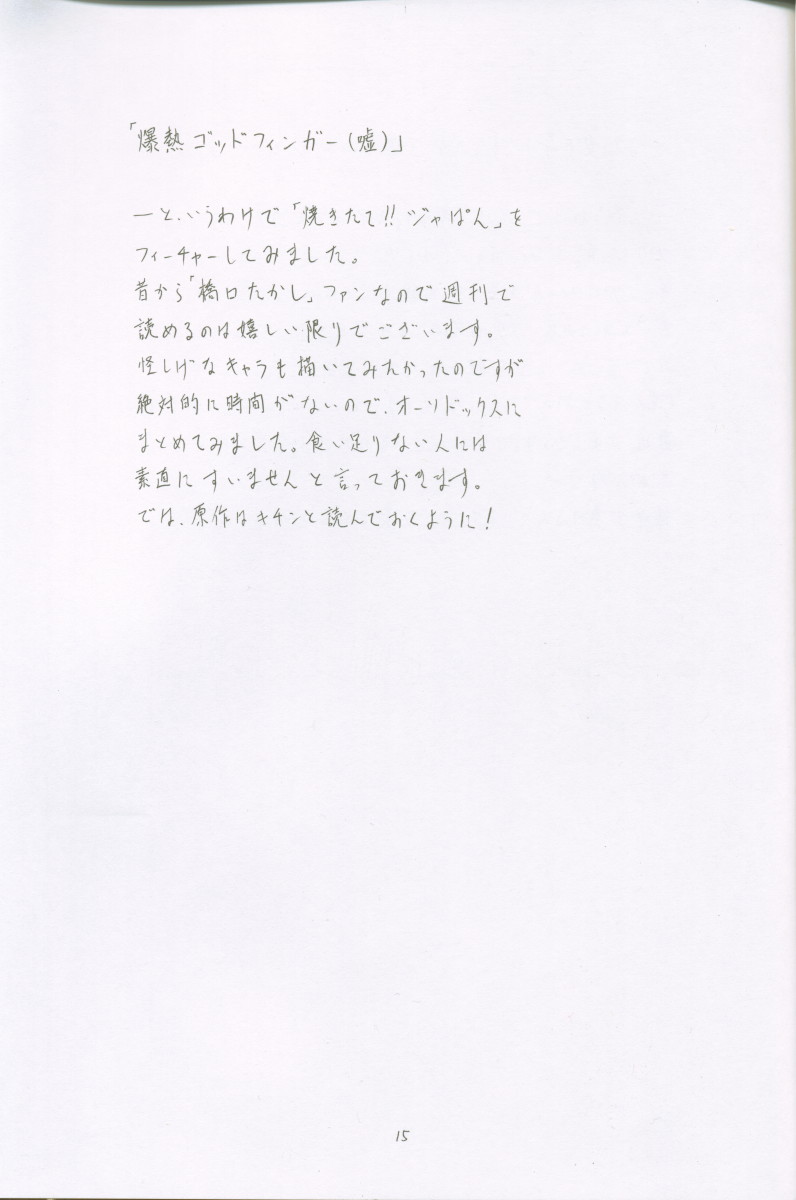 「爆熱ゴッドフィンガー(嘘)」
ーというわけで「焼きたて!!ジャぱん」を
フィーチャーしてみました。
昔から「橋口たかし」ファンなので週刊で
読めるのは嬉しい限りでございます。
怪しげなキャラも描いてみたかったのですが
絶対的に時間がないので、オーソドックスに
まとめてみました。食い足りない人には
素直にすいませんと言っておきます。
では、原作はキチンと読んでおくように!
15